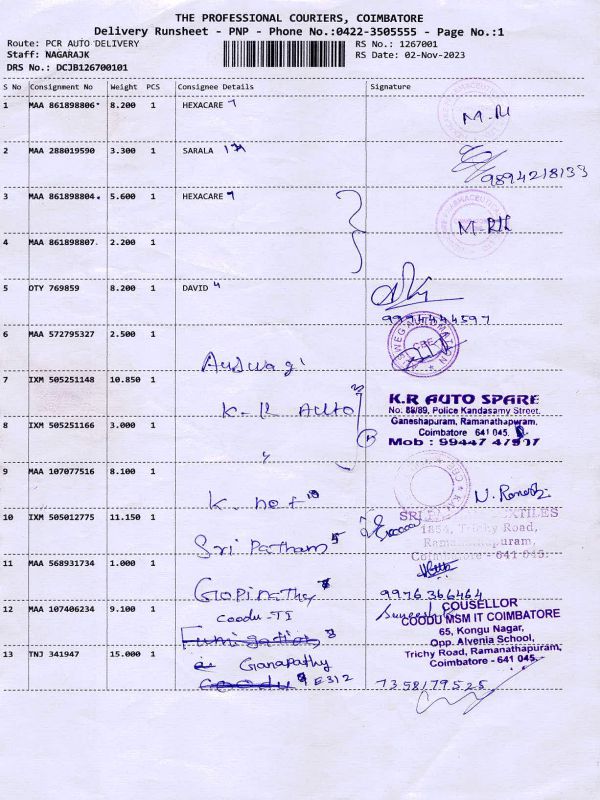 THE PROFESSIONAL COURIERS, COIMBATORE
Delivery Runsheet - PNP - Phone No.:0422-3505555 - Page No.:1
Route: PCR AUTO DELIVERY
RS No.: 1267001
Staff: NAGARAJK
RS Date: 02-Nov-2023
DRS No.: DCJB126700101
S No Consignment No Weight PCS Consignee Details Signature
1 MAA 861898806 8.200 1 HEXACARE
2 MAA 288019590 3.300 1 SARALA
9894218133
3 MAA 861898804 5.600 1 HEXACARE
4 MAA 861898807 2.200 1
5 OTY 769859 8.200 1 DAVID
9994444597
6 MAA 572795327 2.500 1
7 IXM 505251148 10.850 1
K.R Auto
K.R AUTO SPARE
No. 88/89, Police Kandasamy Street,
Ganeshapuram, Ramanathapuram,
Coimbatore 641 045.
Mob : 99447 47507
8 IXM 505251166 3.000 1
9 MAA 107077516 8.100 1
K. net
N. Ramesh
10 IXM 505012775 11.150 1
Sri Patham
1854, Trichy Road,
Ramanathapuram,
Coimbatore - 641 045.
11 MAA 568931734 1.000 1
Gopinath
9976366464
12 MAA 107406234 9.100 1
Coodu-TI
COUSELLOR
COODU MSM IT COIMBATORE
65, Kongu Nagar,
Opp. Alvenia School,
Trichy Road, Ramanathapuram,
Coimbatore - 641 045.
13 TNJ 341947 15.000 1
Ganapathy
E312
7358179525